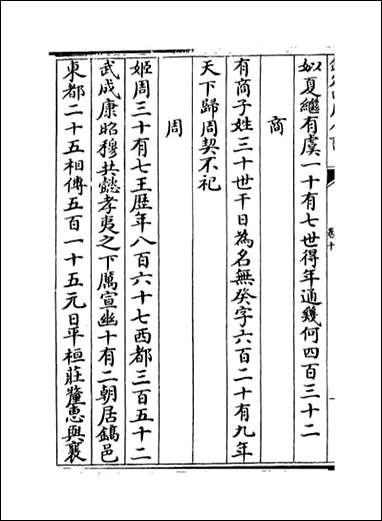 姒夏繼有虞一十有七世得年通幾何四百三十二
商
有商子姓三十世干日為名無癸字六百二十有九年
天下歸周契不祀
周
姬周三十有七王歷年八百六十七西都三百五十二
武成康昭穆共懿孝夷之下厲宣幽十有二朝居鎬邑
東都二十五相傳五百一十五元日平桓莊釐惠與襄